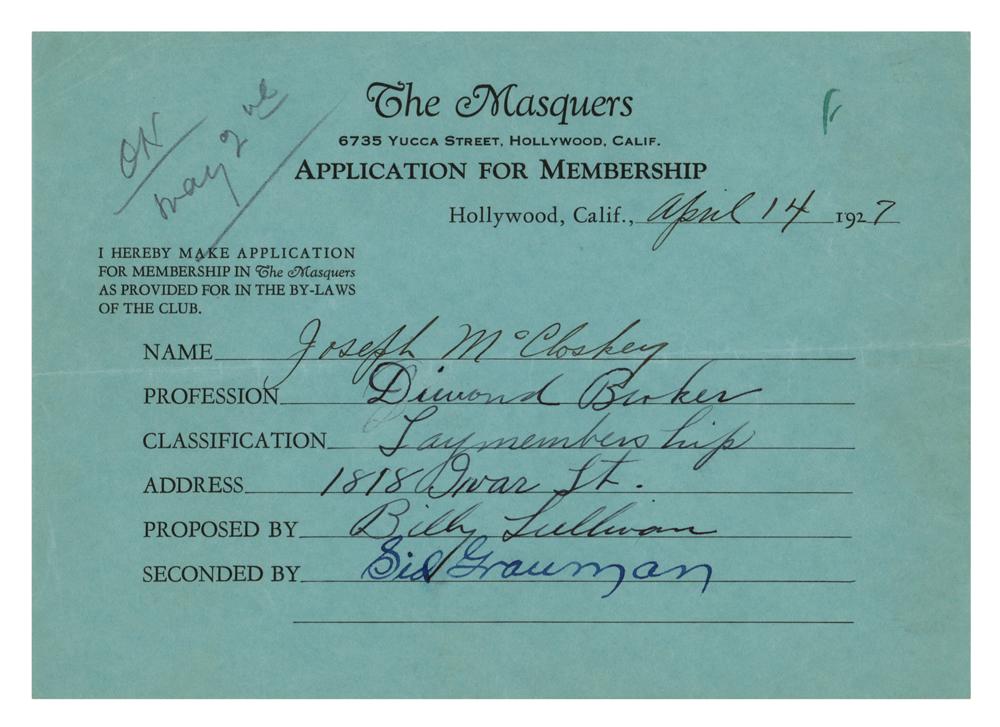 OK
May 2nd
The Masquers
6735 YUCCA STREET, HOLLYWOOD, CALIF.
APPLICATION FOR MEMBERSHIP
Hollywood, Calif., April 14 1927
I HEREBY MAKE APPLICATION
FOR MEMBERSHIP IN The Masquers
AS PROVIDED FOR IN THE BY-LAWS
OF THE CLUB.
NAME Joseph McCloskey
PROFESSION Dimond Broker
CLASSIFICATION Laymembership
ADDRESS 1818 Ivar St.
PROPOSED BY Billy Sullivan
SECONDED BY Sid Grauman